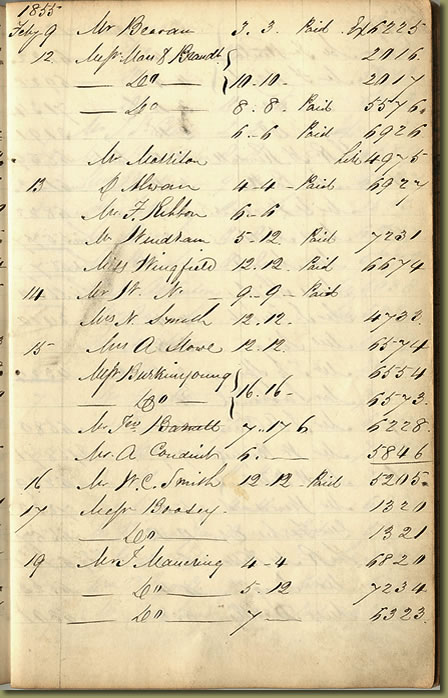 1855
Feby 9 Mr Beavan 3. 3. Paid Ex 6225
12 Messrs Mair & Brandt 2016
— Do — 10.10. 2017
— Do — 8. 8. Paid 5576.
6. 6 Paid 6926
Mr Mattison 4975
13 4 - 4 - Paid 692
Mr F. Ribbon 6 - 6
Mr Windham 5 . 12 Paid 7231
Miss Wingfield 12.12. Paid 6674
14 Mr W. N. — 9 - 9 - Paid
Mrs N. Smith 12.12. 4733.
15 Mrs A Rowe 12.12. 6574
Messrs Burkinyoung 6554
— Do — 16.16. 6573.
Mr Barratt 7. 17 6 6228.
Mr. A Conduit 6. — 5846
16 Mr W. C. Smith 12 12 Paid 5205.
17 Messrs Boosey 1320
— Do 1321
19 Mr J. Manering 4 - 4 6820
— Do — 5 . 12 7234
— Do — 7 — 6323